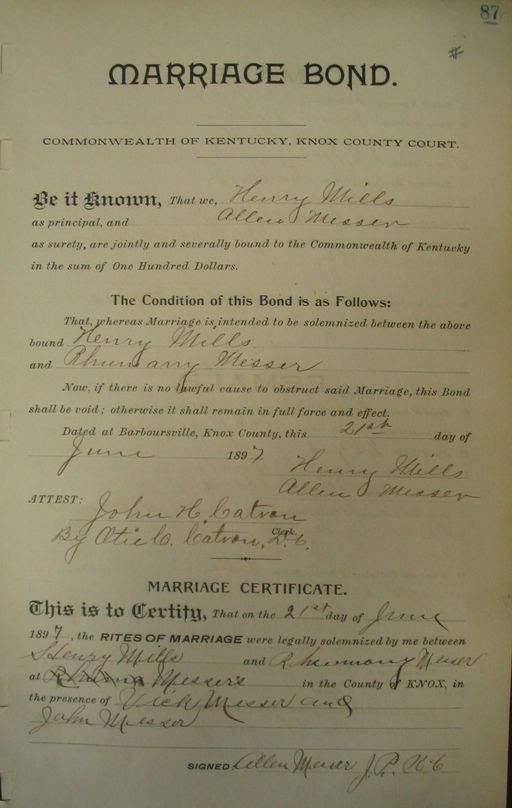 87
#
MARRIAGE BOND.
COMMONWEALTH OF KENTUCKY, KNOX COUNTY COURT.
Be it Known, That we, Henry Mills
as principal, and Allen Messer
as surety, are jointly and severally bound to the Commonwealth of Kentucky
in the sum of One Hundred Dollars.
The Condition of this Bond is as Follows:
That, whereas Marriage is intended to be solemnized between the above
bound Henry Mills
and Rhumany Messer
Now, if there is no lawful cause to obstruct said Marriage, this Bond
shall be void; otherwise it shall remain in full force and effect.
Dated at Barboursville, Knox County, this 21st day of
June 1897
Henry Mills
Allen Messer
ATTEST:
John H Catron
Clerk.
By Otie C. Catron, D.C.
MARRIAGE CERTIFICATE.
This is to Certify, That on the 21st day of June
1897, the RITES OF MARRIAGE were legally solemnized by me between
Henry Mills and Messer
at Messers in the County of KNOX, in
the presence of Vick Messer and
John Messer
SIGNED Allen Messer J.P. K.C